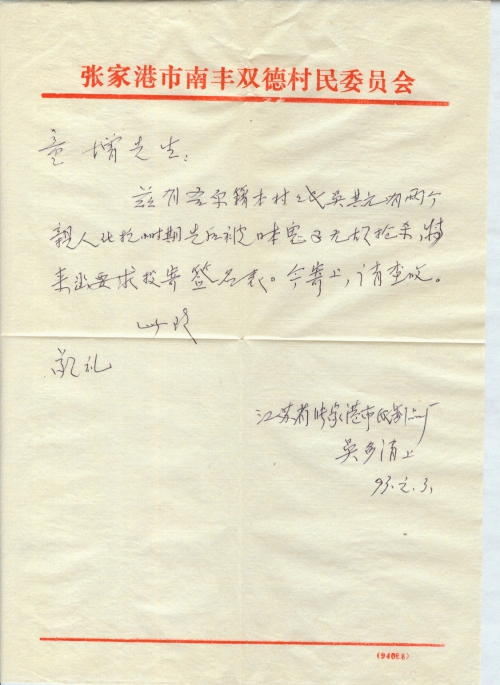 张家港市南丰双德村民委员会
童增先生:
兹有 原籍本村 民吴其元有两个
亲人在抗日时期先后被日本鬼子无故抢杀,特
来函要求投寄签名表。今寄上,请查收。
此致
敬礼
江苏省张家港市 厂
吴 上
93.2.3.